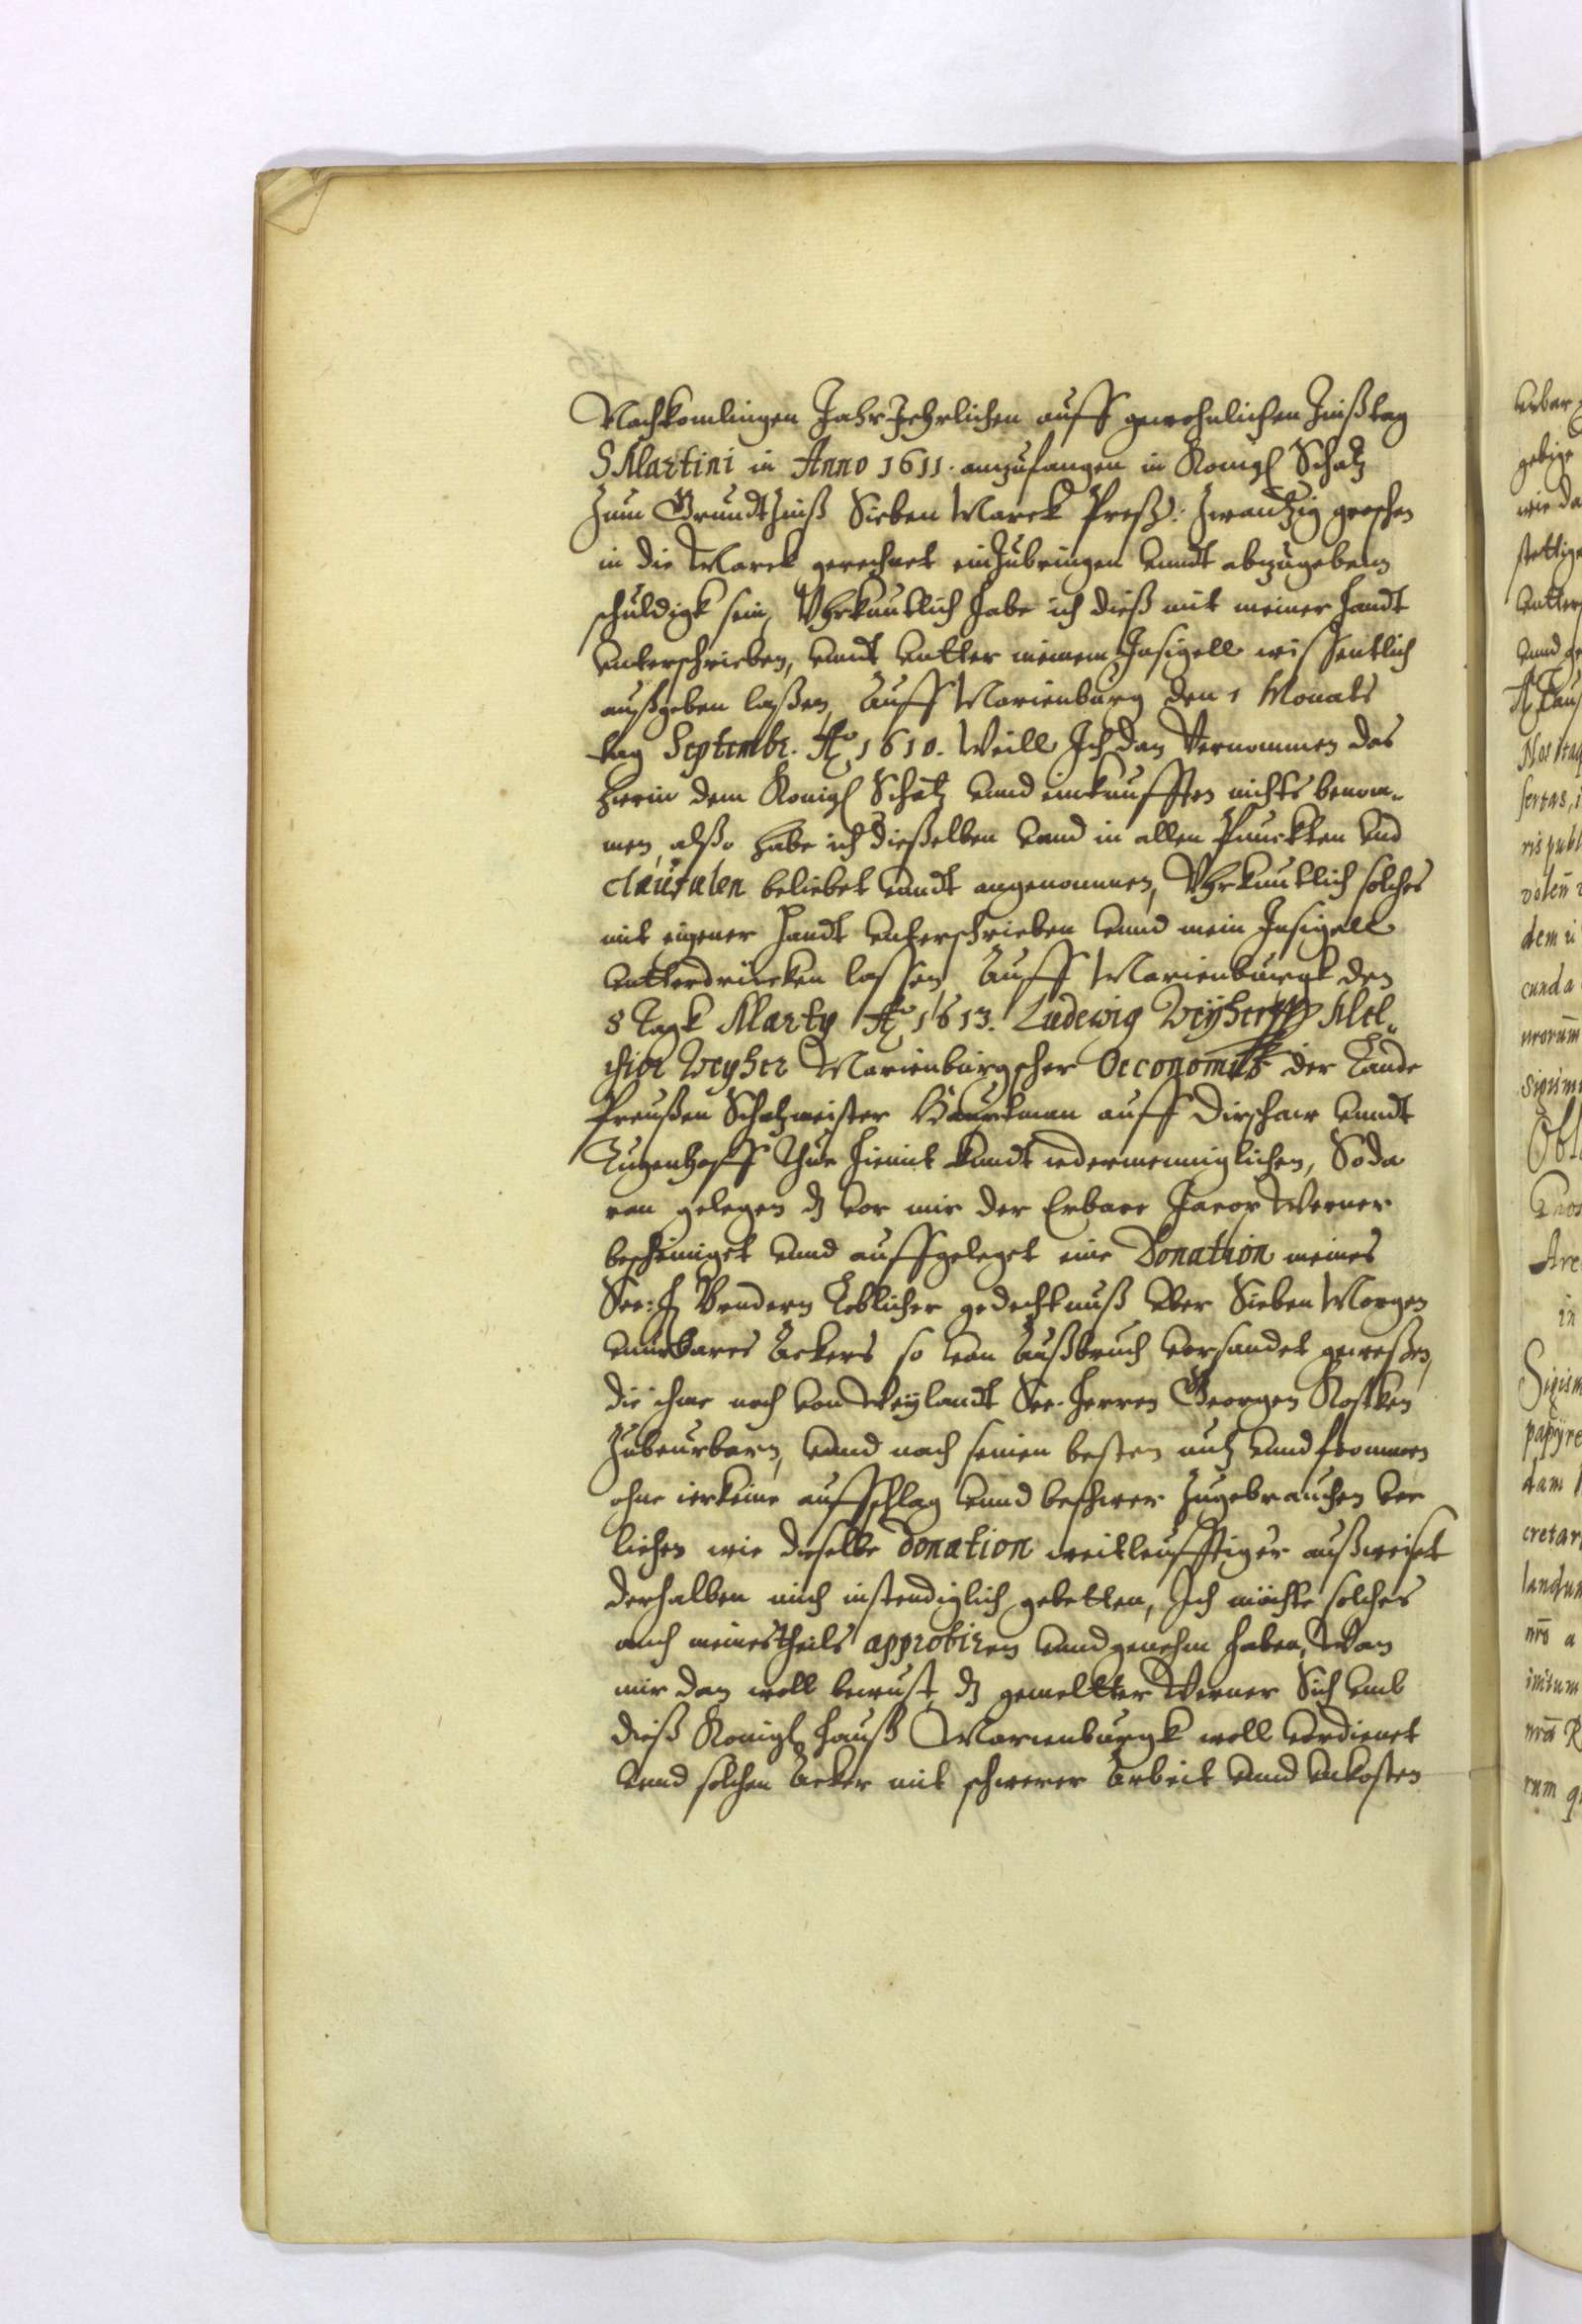 Nachkomlingen Jahr Jehrlichen auff gewohnlichen Zinßtag
S Martini in Anno 1611. anzufangen in Konigl Schatz
Zum Grundt Zinß Sieben Marck Preß: Zwantzig groschen
in die Marck gerechnet ein Zubringen vnndt abzugeben
schuldigk sein, Vhrkuntlich habe ich dieß mit meiner handt
vnterschrieben, vnnd vntter meinem Insigell wissentlich
außgeben laßen, Auff Marienburg den 1 Monats
tag Septembr. Ao 1610. Weill Ich dan Vernommen das
hierin dem Konigl Schatz vnnd einkunfften nichts benom-
men, alßo habe ich dießelben vnnd in allen Punckten vnd
clausulen beliebet vnndt angenommen, Vhrkuntlich solches
mit eigener Handt vnterschrieben vnnd mein Insigell
vntterdrücken lassen, Auff Marienburgk den
8 Tagk Marty Ao 1613. Ludewig Weyher Mel-
chior Weyher Marienburgscher Oeconomus der Lande
Preußen Schatzmeister Häuptman auff Dirschaw vnndt
Thue hiemit kundt iedermenniglichen, So da
ran gelegen dz vor mir der Erbare Jacob Werner
bescheiniget vnnd auffgeleget eine Donation meines
See: H Brudern Loblicher gedechtnuß vber Sieben Morgen
vnurbares Ackers so von Außbruch versandet geweßen,
die ihme noch von Weylandt See. Herren Georgen Kostken
Zubeurbarn, vnnd nach seinen besten nutz vnnd frommen
ohne ierkeine auffschlag vnnd beschwer Zugebrauchen ver
liehen wie dieselbe donation weitleufftiger außweiset
derhalben mich instendiglich gebetten, Ich möchte solches
auch meinestheils approbiren vnnd genehm haben, Wan
mir dan woll bewust, dz gemeltter Werner Sich vmb
dieß Konigl Hauß Marienburgk woll verdienet
vnnd solchen Acker mit schwerer Arbeit vnnd vnkosten